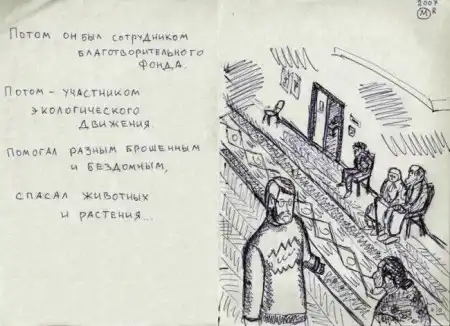 Потом он был сотрудником
благотворительного
фонда.
Потом – участником
экологического
движения.
Помогал разным брошенным
и бездомным,
спасал животных
и растения...
2007
М
Я